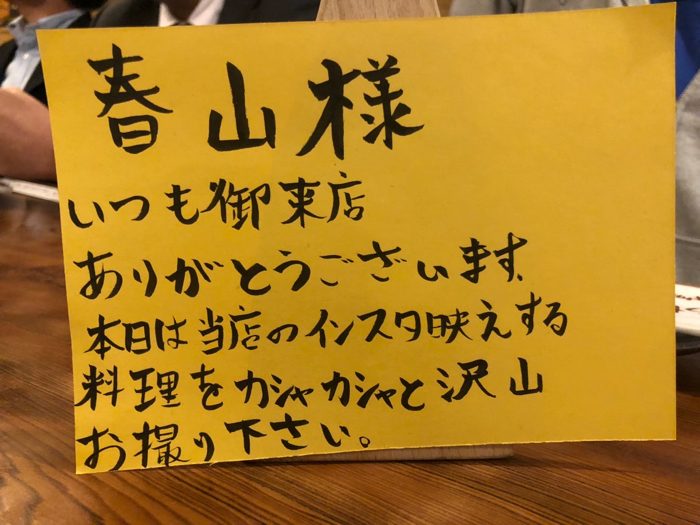 春山様
いつも御来店
ありがとうございます、
本日は当店のインスタ映えする
料理をカシャカシャと沢山
お撮り下さい。